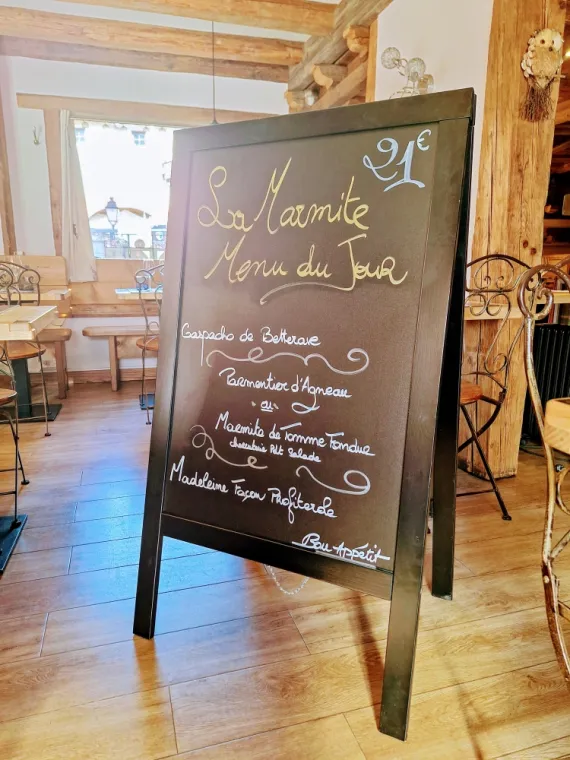 21€
La Marmite
Menu du Jour
Gaspacho de Betterave
Parmentier d'Agneau
ou
Marmite de Tomme Fondue
charcuterie Pdt Salade
Madeleine Façon Profiterole
Bon Appétit